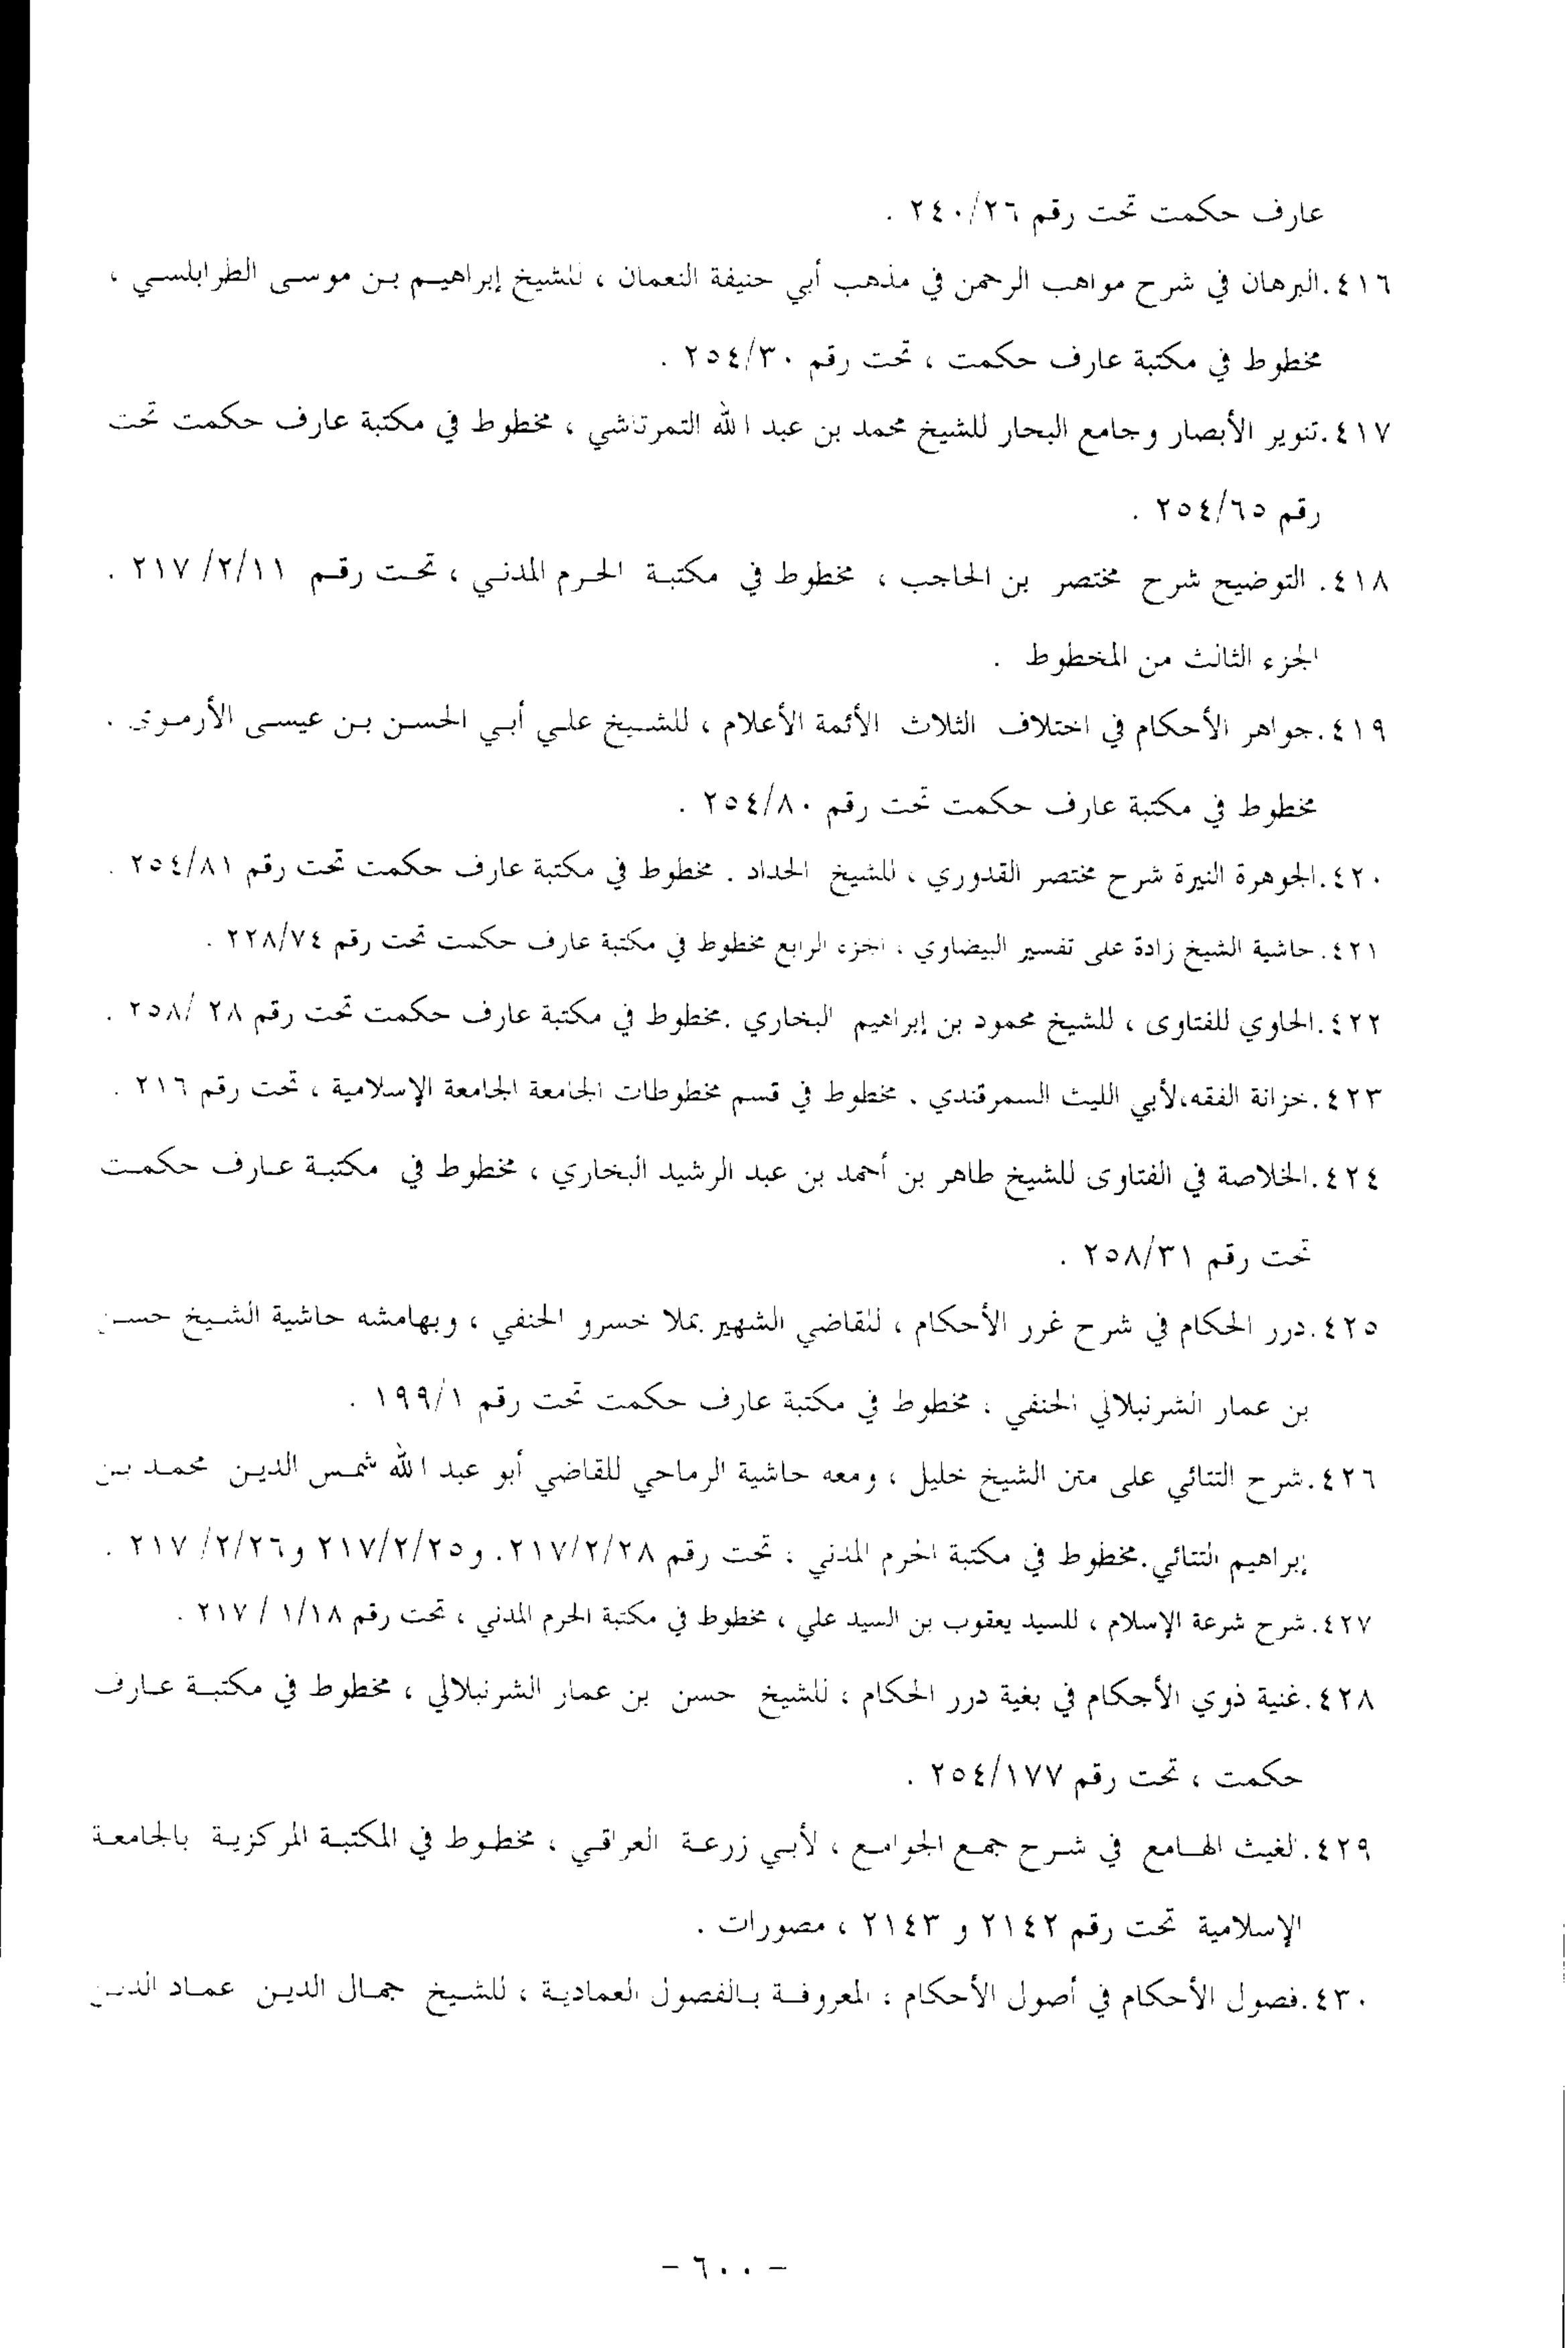 عارف حكمت تحت رقم ٢٤٠/٢٦ .
٤١٦.البرهان في شرح مواهب الرحمن في مذهب أبي حنيفة النعمان ، للشيخ إبراهيم بن موسى الطرابلسي ،
مخطوط في مكتبة عارف حكمت ، تحت رقم ٢٥٤/٣٠ .
٤١٧.تنوير الأبصار وجامع البحار للشيخ محمد بن عبد الله التمرتاشي ، مخطوط في مكتبة عارف حكمت تحت
رقم ٢٥٤/٦٥ .
٤١٨. التوضيح شرح مختصر بن الحاجب ، مخطوط في مكتبة الحرم المدني ، تحت رقم ٢١٧/٢/١١ .
الجزء الثالث من المخطوط .
٤١٩.جواهر الأحكام في اختلاف الثلاث الأئمة الأعلام ، للشيخ علي أبي الحسن بن عيسى الأرموي .
مخطوط في مكتبة عارف حكمت تحت رقم ٢٥٤/٨٠ .
٤٢٠.الجوهرة النيرة شرح مختصر القدوري ، للشيخ الحداد . مخطوط في مكتبة عارف حكمت تحت رقم ٢٥٤/٨١ .
٤٢١. حاشية الشيخ زادة على تفسير البيضاوي ، الجزء الرابع مخطوط في مكتبة عارف حكمت تحت رقم ٢٢٨/٧٤ .
٤٢٢.الحاوي للفتاوى ، للشيخ محمود بن إبراهيم البخاري .مخطوط في مكتبة عارف حكمت تحت رقم ٢٨ /٢٥٨ .
٤٢٣.خزانة الفقه،لأبي الليث السمرقندي . مخطوط في قسم مخطوطات الجامعة الجامعة الإسلامية ، تحت رقم ٢١٦ .
٤٢٤.الخلاصة في الفتاوى للشيخ طاهر بن أحمد بن عبد الرشيد البخاري ، مخطوط في مكتبة عارف حكمت
تحت رقم ٢٥٨/٣١ .
٤٢٥.درر الحكام في شرح غرر الأحكام ، للقاضي الشهير بملا خسرو الحنفي ، وبهامشه حاشية الشيخ حسن
بن عمار الشرنبلالي الحنفي ، مخطوط في مكتبة عارف حكمت تحت رقم ١٩٩/١ .
٤٢٦.شرح التتائي على متن الشيخ خليل ، ومعه حاشية الرماحي للقاضي أبو عبد الله شمس الدين محمد بن
إبراهيم التتائي.مخطوط في مكتبة الحرم المدني ، تحت رقم ٢١٧/٢/٢٨. و٢١٧/٢/٢٥ و٢١٧/٢/٢٦ .
٤٢٧. شرح شرعة الإسلام ، للسيد يعقوب بن السيد علي ، مخطوط في مكتبة الحرم المدني ، تحت رقم ١/١٨ / ٢١٧ .
٤٢٨.غنية ذوي الأجكام في بغية درر الحكام ، للشيخ حسن بن عمار الشرنبلالي ، مخطوط في مكتبة عارف
حكمت ، تحت رقم ٢٥٤/١٧٧ .
٤٢٩. لغيث الهامع في شرح جمع الجوامع ، لأبي زرعة العراقي ، مخطوط في المكتبة المركزية بالجامعة
الإسلامية تحت رقم ٢١٤٢ و ٢١٤٣ ، مصورات .
٤٣٠.فصول الأحكام في أصول الأحكام ، المعروفة بالفصول العمادية ، للشيخ جمال الدين عماد الدين
– ٦٠٠ –